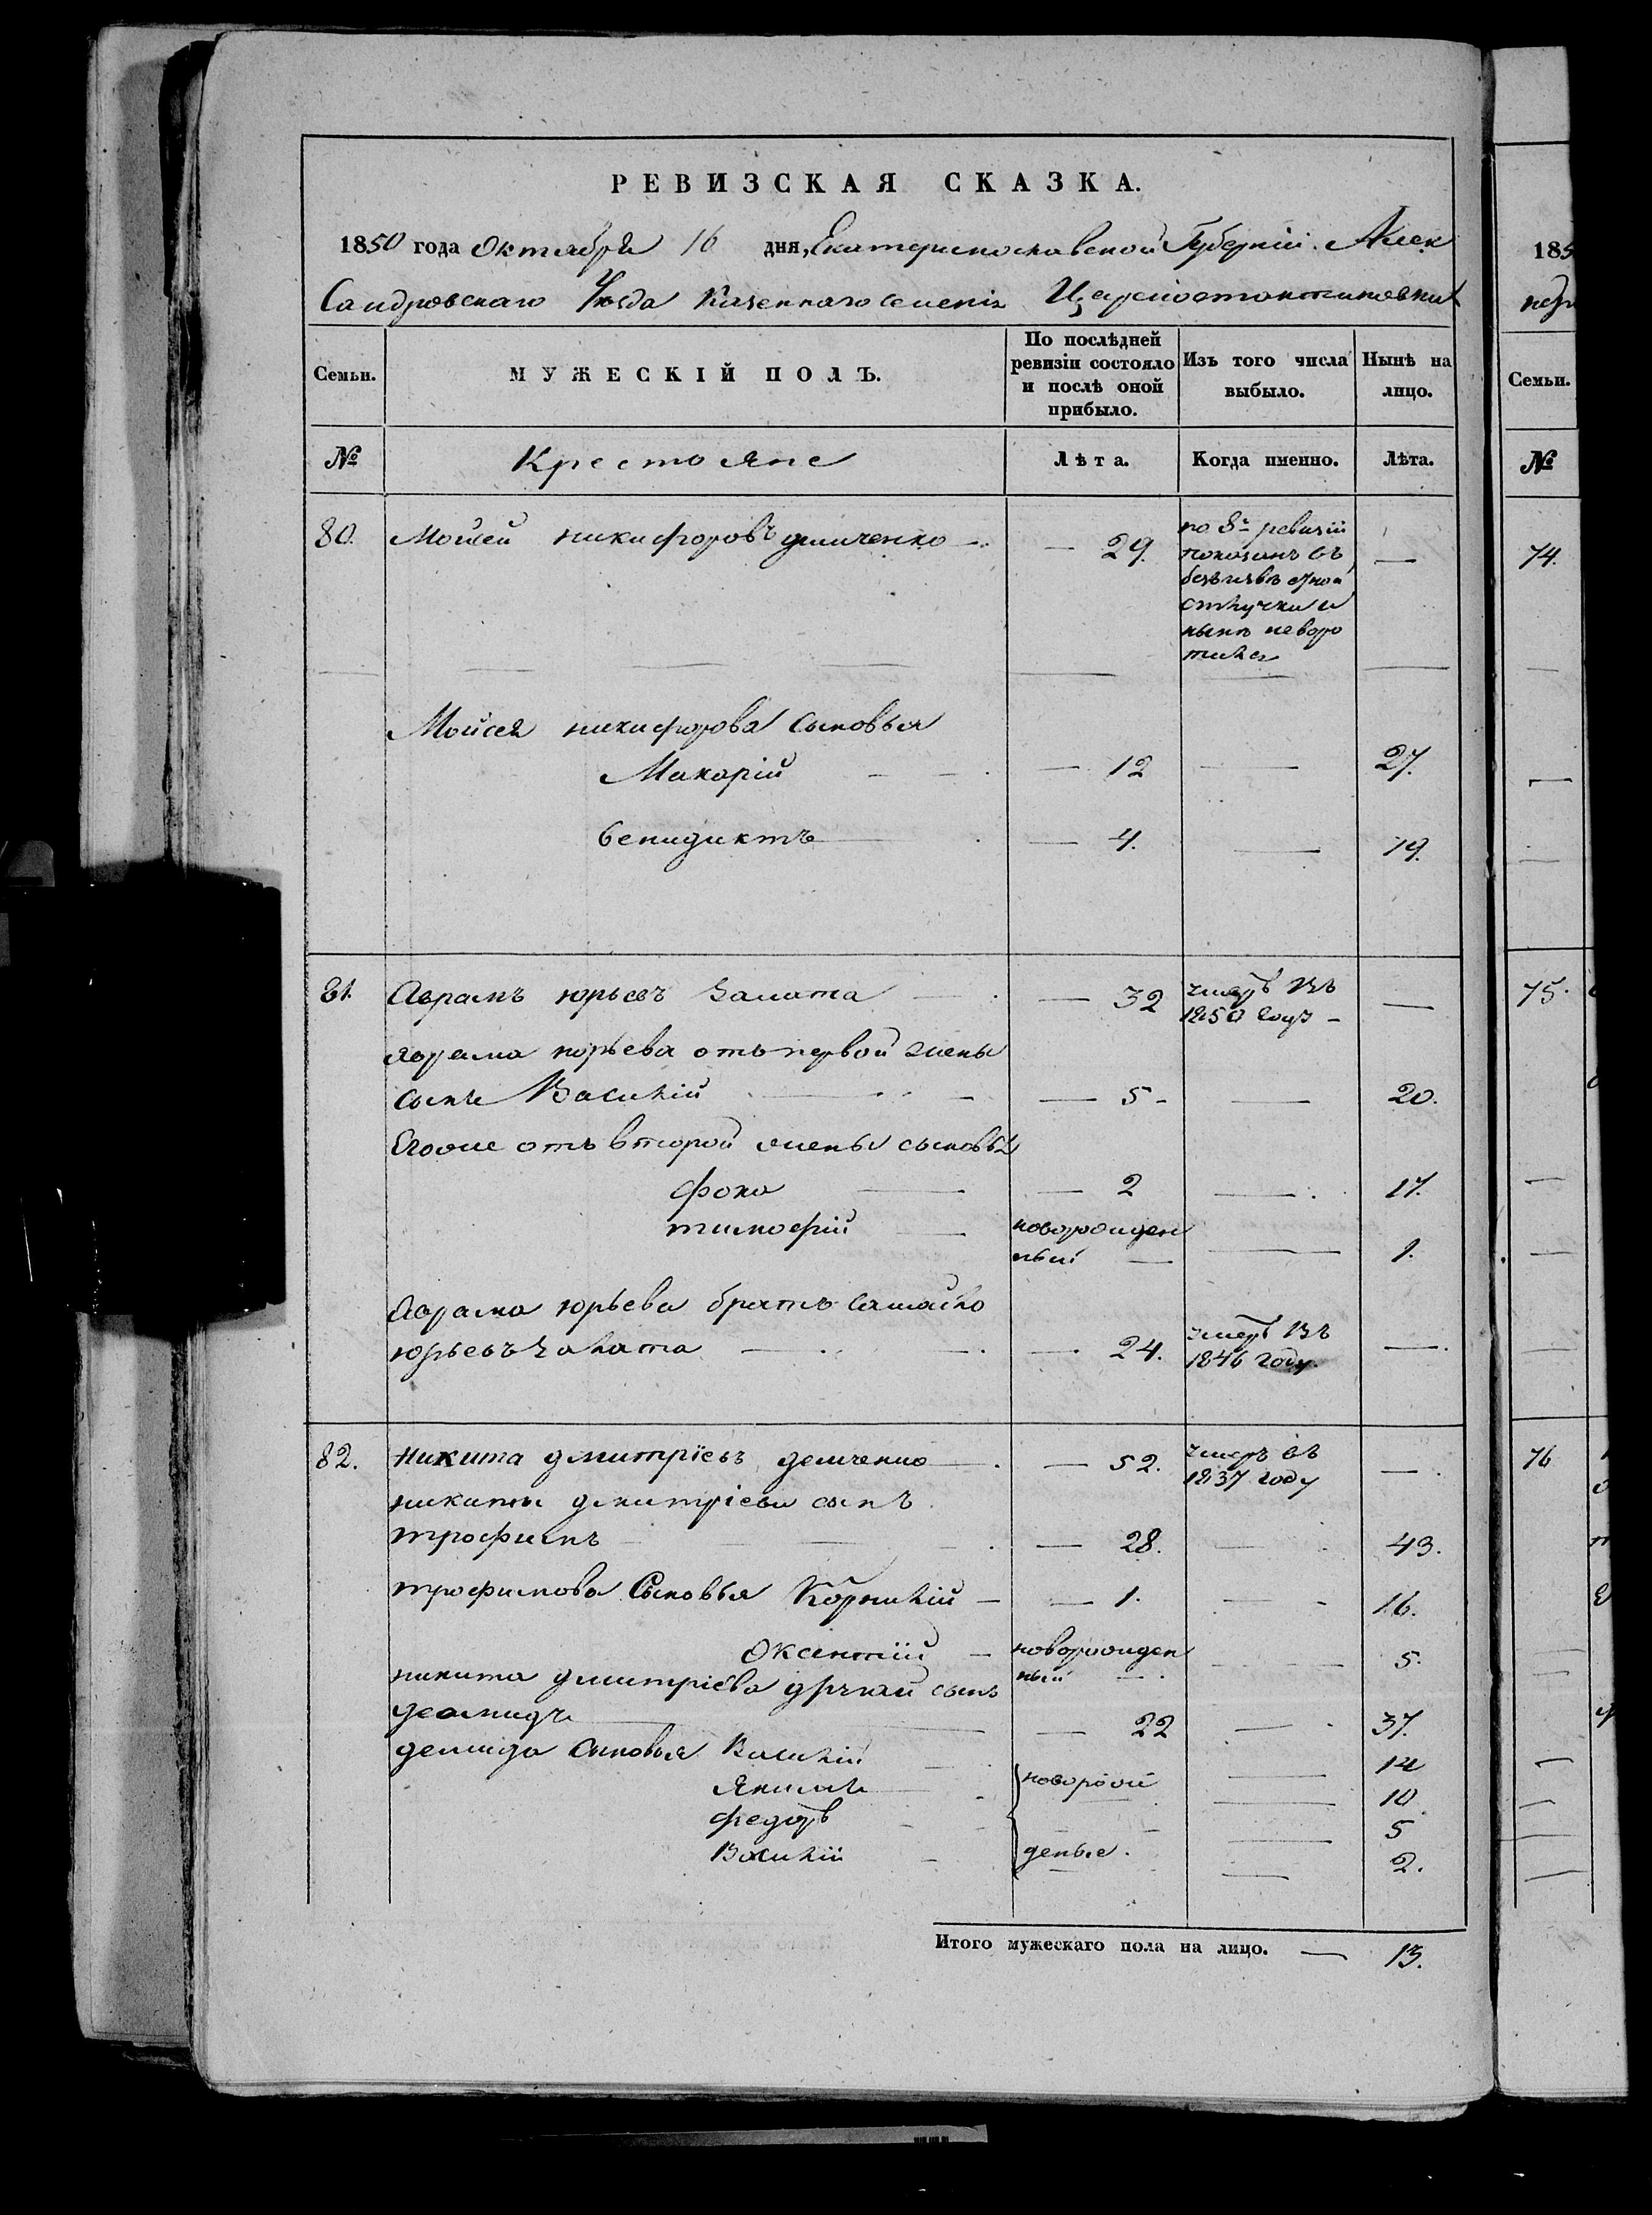 РЕВИЗСКАЯ СКАЗКА.
1850 года Октября 16 дня, Екатеринославской Губерніи Алек
Сандровскаго Уѣзда Казеннаго селенія Цареконстантиновки
Семьи. МУЖЕСКІЙ ПОЛЪ. По послѣдней ревизіи состояло и послѣ оной прибыло. Изъ того числа выбыло. Ныне на лицо.
№ Крестьяне Лѣта. Когда именно. Лѣта.
80. Мойсей никифоровъ — 29. по 8й ревизіи —
показанъ въ
безъизвѣстной
отлучки и
нынѣ неворо
тился
Мойсея никифорова Сыновья
Макарій — 12 — 27.
бенидиктъ — 4. — 19.
81. Аврамъ юрьевъ Халата — 32 умеръ Въ —
1850 году —
Аврама юрьева отъ первой жены
сынъ Василій — 5 — — 20.
Егоже отъ второй жены сыновья
фока — 2 — 17.
тимофій новорожден — 1.
ный —
Аврама юрьева братъ Самойло
юрьевъ Халата — 24. умеръ Въ —
1846 году.
82. Никита дмитріевъ демченко — 52. умеръ въ —
1837 году
никиты дмитріева сынъ
трофимъ — 28. — 43.
трофимова Сыновья Корнилій — 1. — 16.
Оксентій — новорожден — 5.
ный —
никита дмитріева другай сынъ
демидъ — 22 — 37.
демида Сыновья Василій — 14
Якимъ новорож — 10
федоръ — 5
Василій деные. — 2.
Итого мужескаго пола на лицо. — 13.
185
Семьи.
№
74.
75.
76